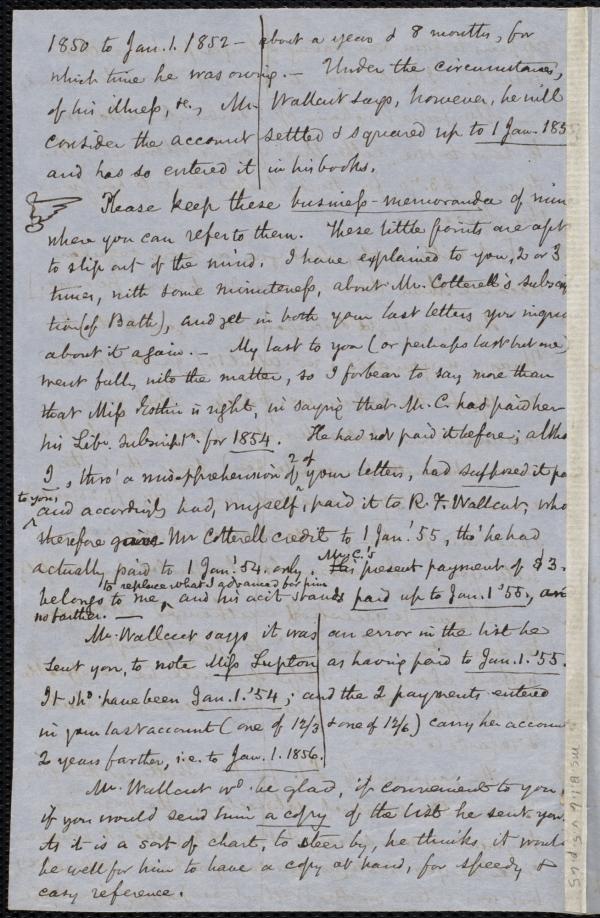 1850 to Jan. 1. 1852 – about a year & 8 months, for
which time he was owing. – Under the circumstances,
of his illness, &c., Mr. Wallcut says, however, he will
consider the account settled & squared up to 1 Jan. 185
and has so entered it in his books.
Please keep these business-memoranda of min
where you can refer to them. These little points are apt
to slip out of the mind. I have explained to you, 2 or 3
times, with some minuteness, about Mr. Cotterell's subscrip
tion (of Bath), and yet in both your last letters you inquire
about it again. – My last to you (or perhaps last but one)
went fully into the matter, so I forbear to say more than
that Miss Estlin is right, in saying that Mr. C. had paid her
his Libr. subscriptn. for 1854. He had not paid it before; altho
I, thro' a misapprehension of 2 of your letters, had supposed it pa
to you,
and accordingly had, myself, paid it to R. F. Wallcut, who
therefore gave Mr Cotterell credit to 1 Jan. '55, tho' he had
actually paid to 1 Jan. '54. only. Mr C.'s present payment of $3.
to replace what I advanced for him
belongs to me, and his acct stands paid up to Jan. 1 '55, and
no farther. –
Mr. Wallcut says it was an error in the list he
sent you, to note Miss Lupton as having paid to Jan. 1. '55.
It shd. have been Jan. 1. '54; and the 2 payments entered
in your last account (one of 12/3 & one of 12/6) carry her accoun
2 years farther, i.e. to Jan. 1. 1856.
Mr. Wallcut wd. be glad, if convenient to you,
if you would send him a copy of the list he sent you.
As it is a sort of chart, to steer by, he thinks it would
be well for him to have a copy at hand, for speedy &
easy reference.